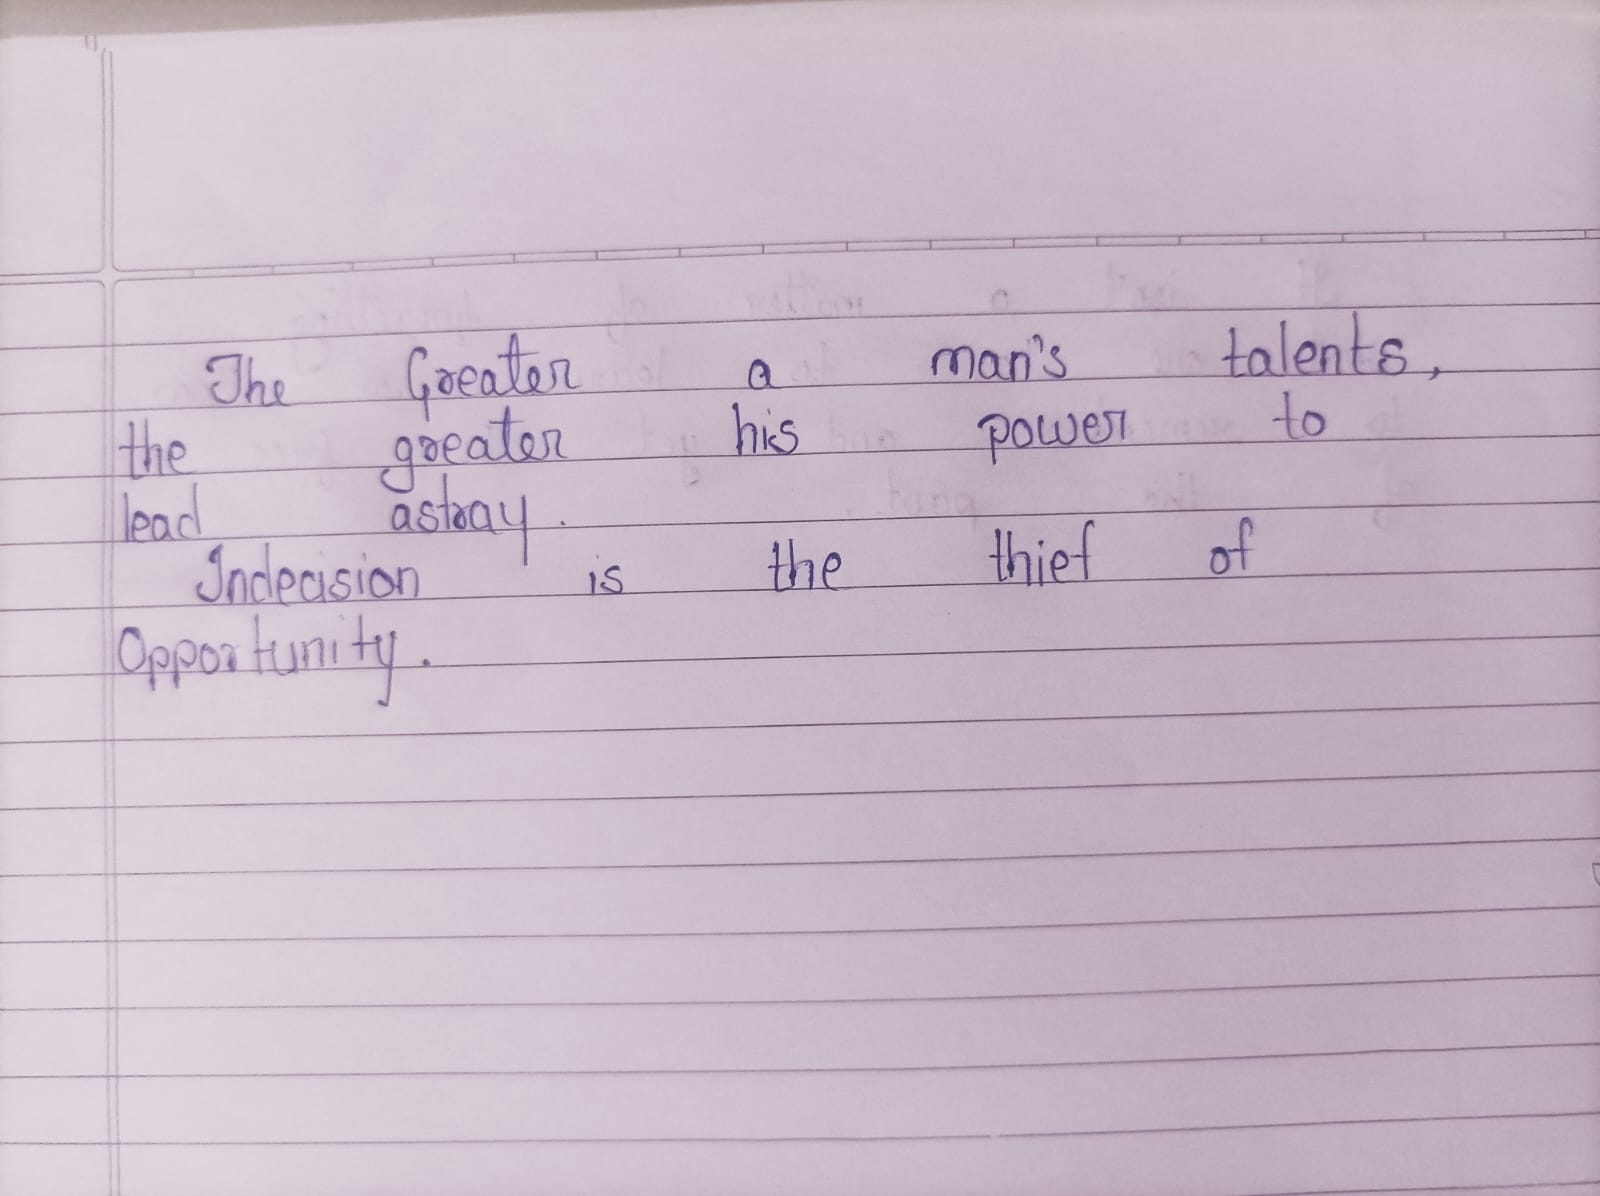 The Greater a man's talents,
the greater his power to
lead astray.
Indecision is the thief of
Opportunity.